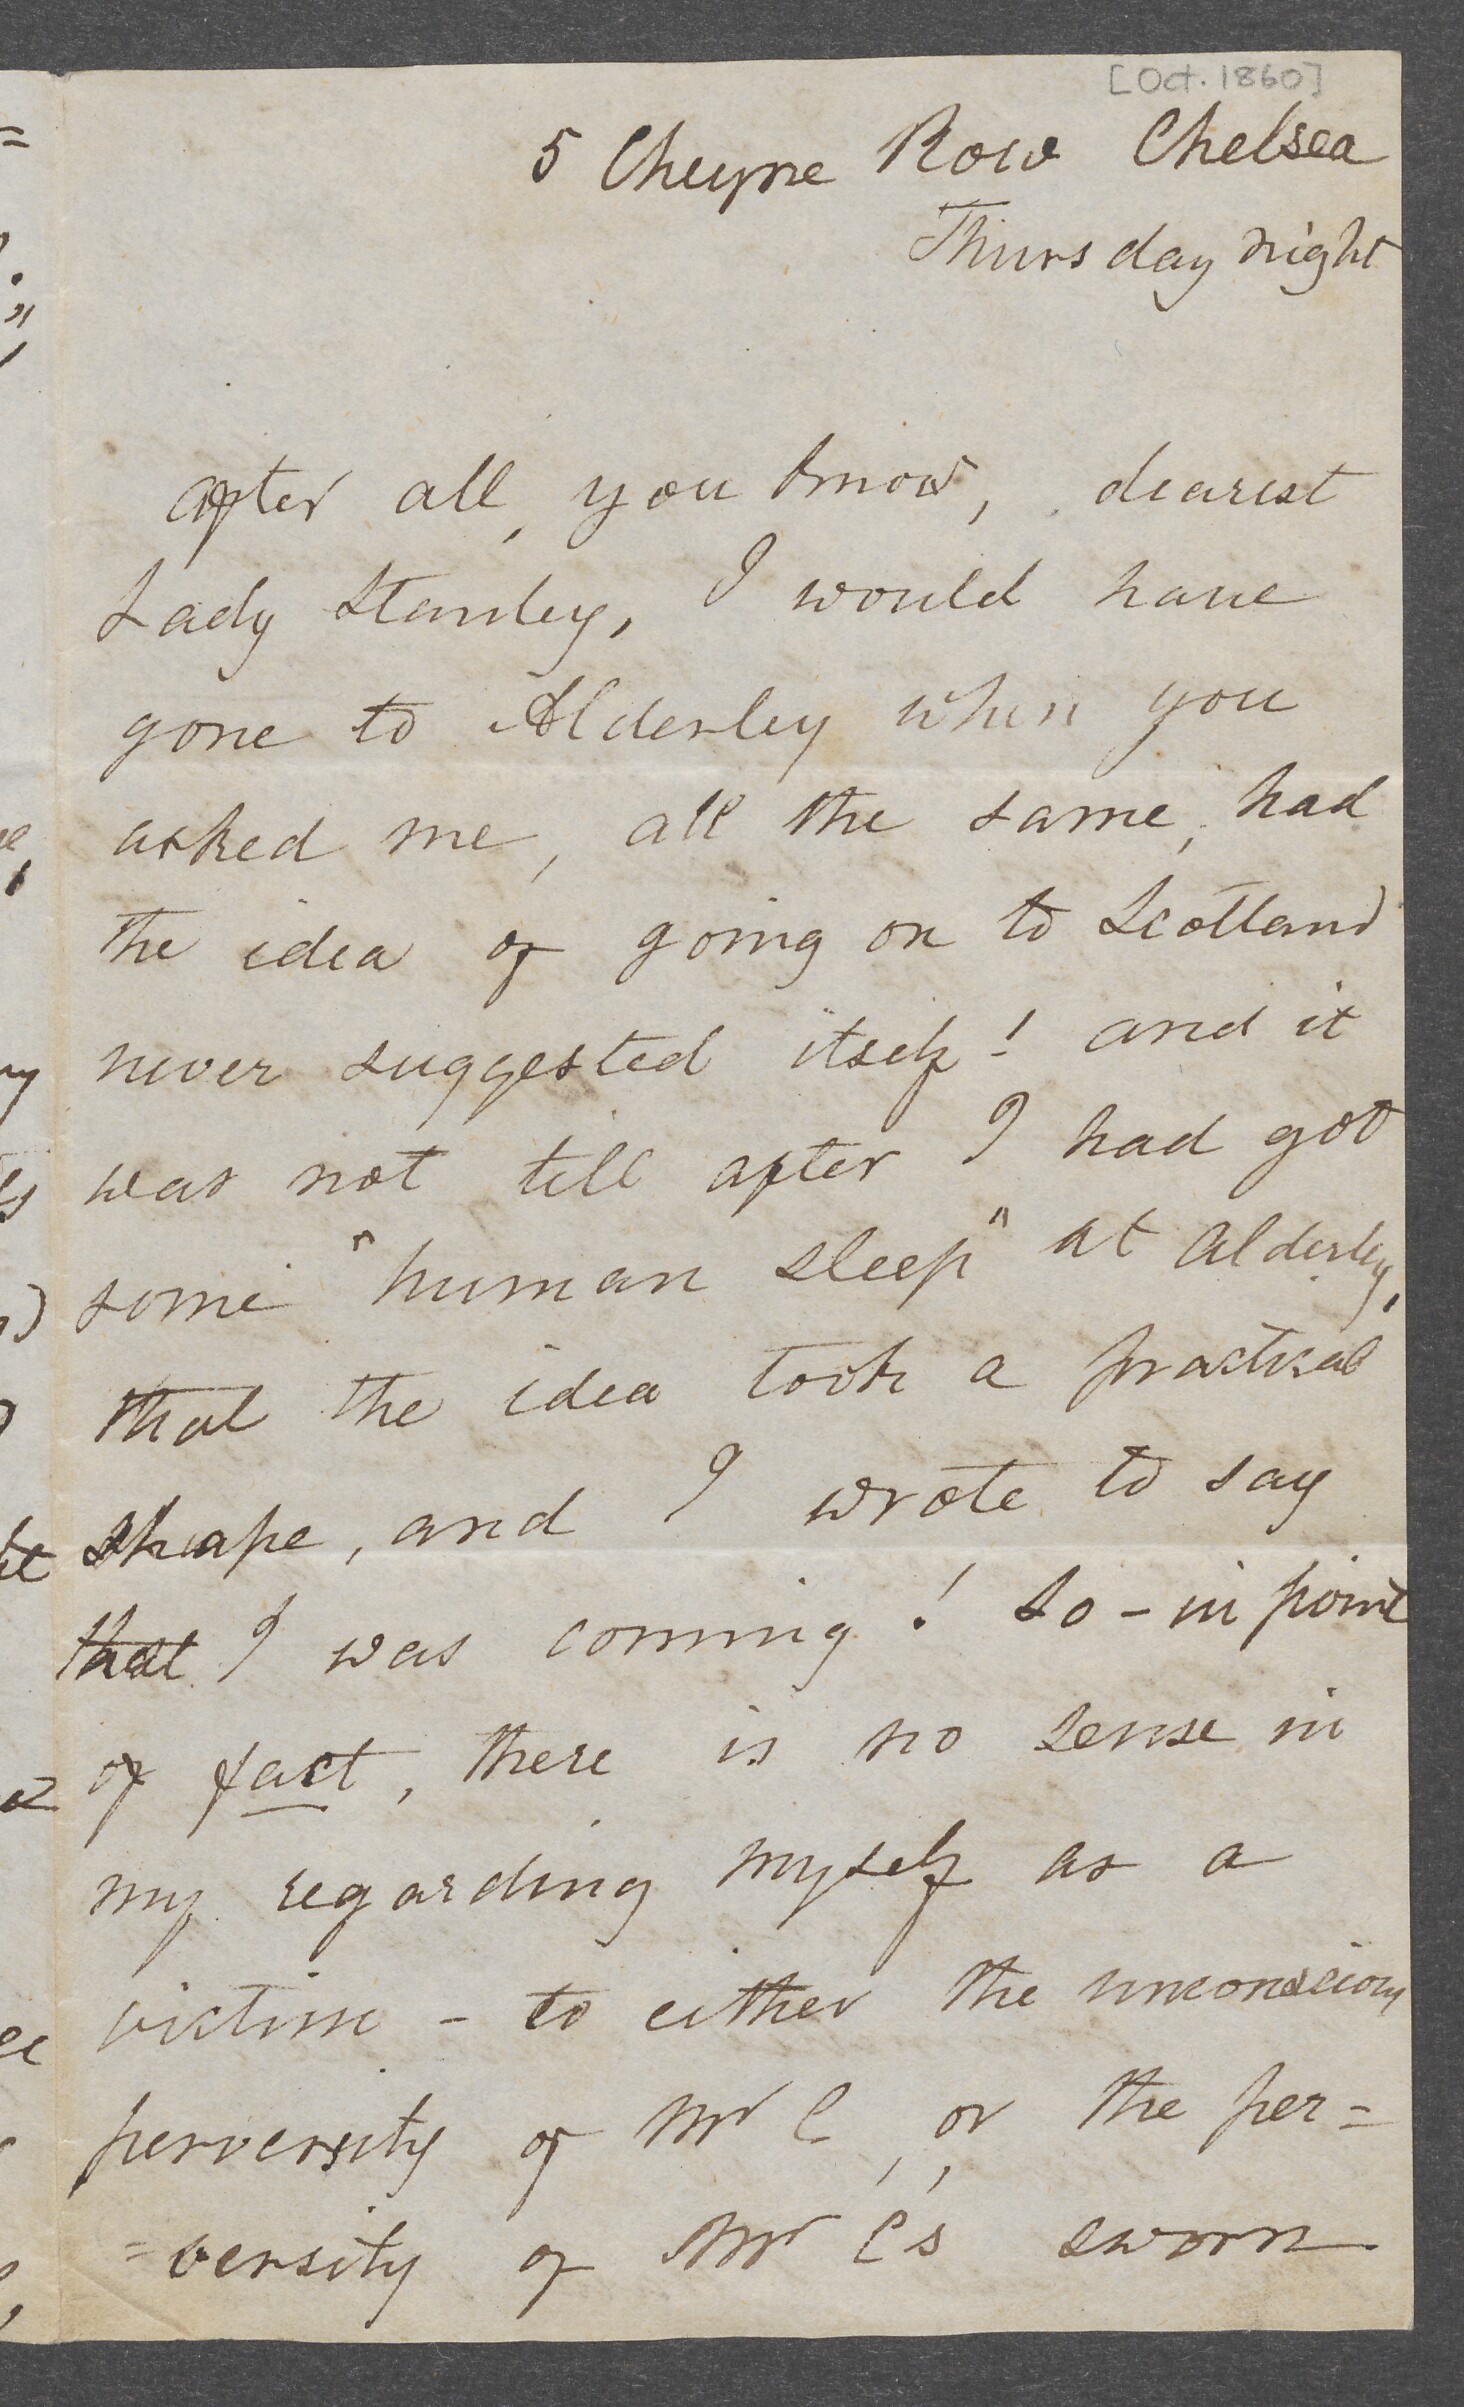 [Oct. 1860]
5 Cheyne Row Chelsea
Thursday night
After all, you know, dearest
Lady Stanley, I would have
gone to Alderley when you
asked me, all the same, had
the idea of going on to Scotland
never suggested itself! and it
was not till after I had got
some "human sleep" at Alderley,
that the idea took a practical
shape, and I wrote to say
that I was coming! So – in point
of fact, there is no sense in
my regarding myself as a
victim – to either the unconscious
perversity of Mr C, or the per=
=versity of Mr C's sworn